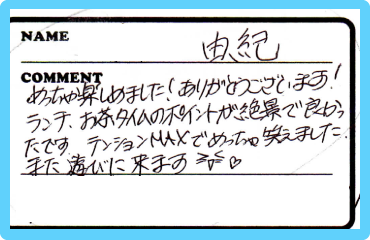 NAME
由紀
COMMENT
めっちゃ楽しめました!ありがとうございます!
ランチ、お茶タイムのポイントが絶景で良かっ
たです テンションMAXでめっちゃ笑えました!
また遊びに来ます♡